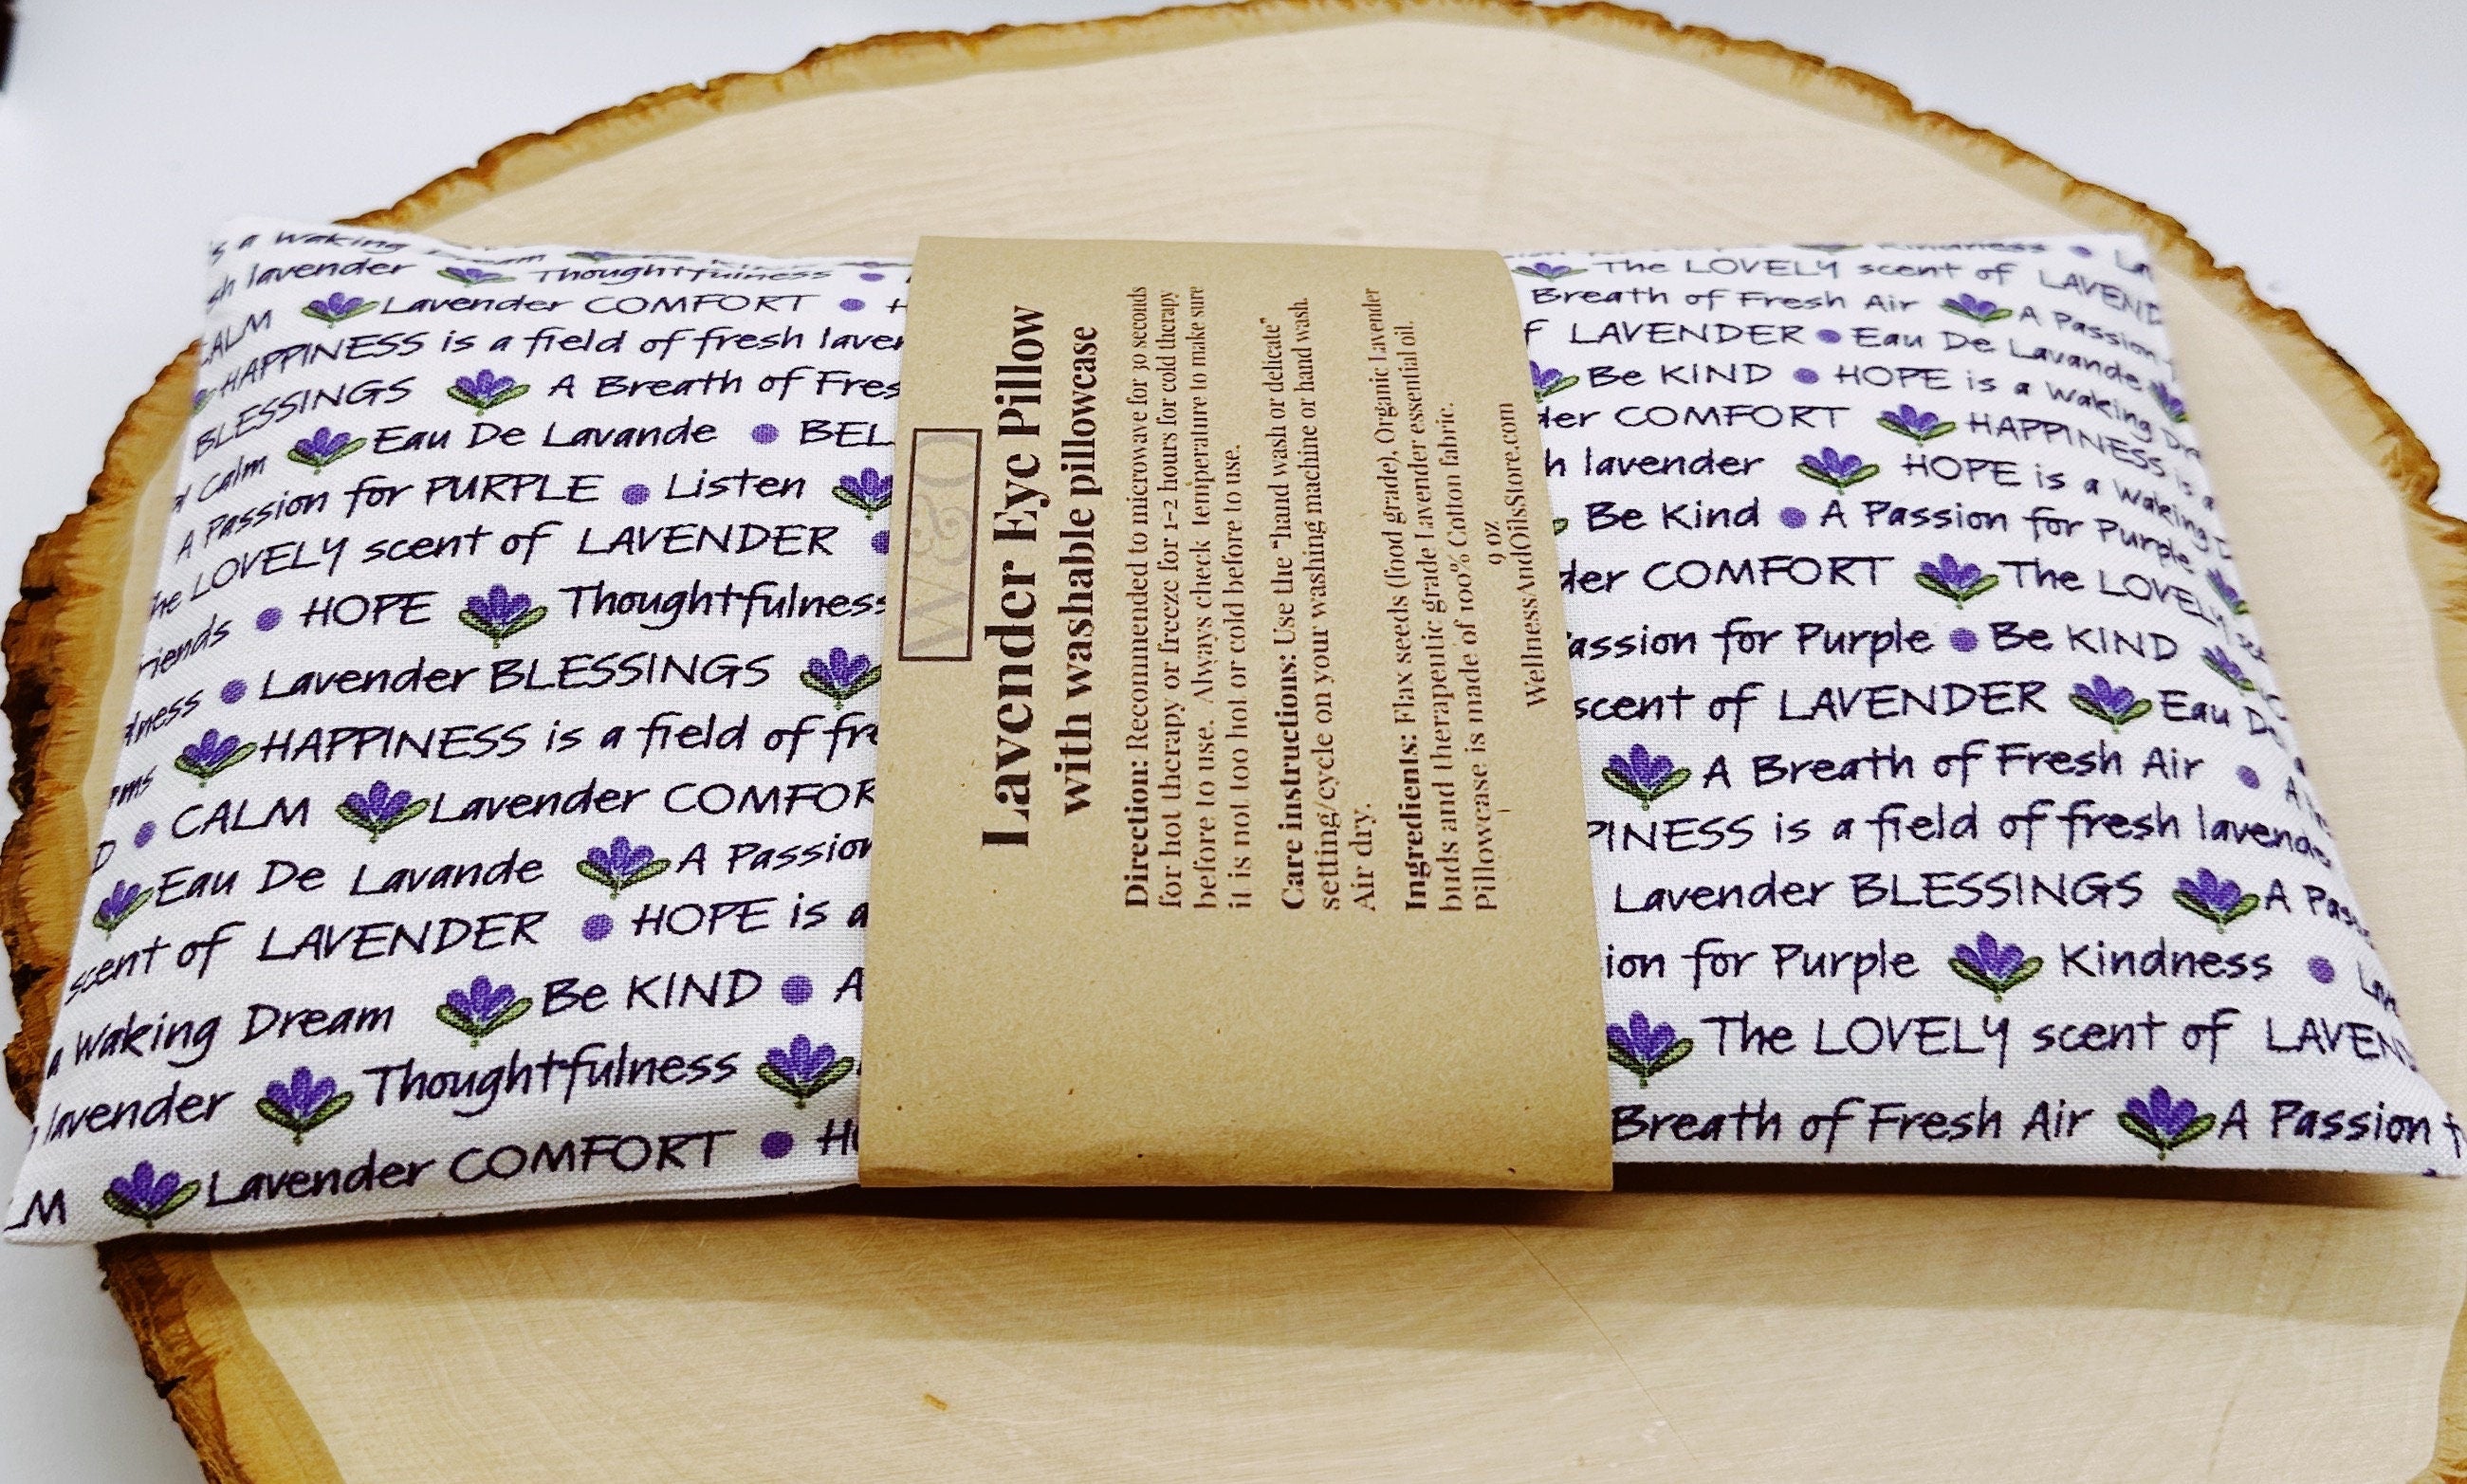 s a Waking Dream
sh lavender Thoughtfulness
CALM Lavender COMFORT H
HAPPINESS is a field of fresh laven
BLESSINGS A Breath of Fres
d Calm Eau De Lavande BEL
A Passion for PURPLE Listen
The LOVELY scent of LAVENDER
riends HOPE Thoughtfulness
dness Lavender BLESSINGS
rms HAPPINESS is a field of fre
D CALM Lavender COMFOR
Eau De Lavande A Passion
scent of LAVENDER HOPE is a
a Waking Dream Be KIND A
lavender Thoughtfulness
LM Lavender COMFORT HO
W&O
Lavender Eye Pillow
with washable pillowcase
Direction: Recommended to microwave for 30 seconds
for hot therapy or freeze for 1-2 hours for cold therapy
before to use. Always check temperature to make sure
it is not too hot or cold before to use.
Care instructions: Use the "hand wash or delicate"
setting/cycle on your washing machine or hand wash.
Air dry.
Ingredients: Flax seeds (food grade), Organic Lavender
buds and therapeutic grade Lavender essential oil.
Pillowcase is made of 100% Cotton fabric.
9 oz
WellnessAndOilsStore.com
Kindness La
The LOVELY scent of LAVEND
Breath of Fresh Air A Passion
f LAVENDER Eau De Lavande
Be KIND HOPE is a Waking Dre
der COMFORT HAPPINESS is a
h lavender HOPE is a Waking D
Be Kind A Passion for Purple
der COMFORT The LOVELY sce
assion for Purple Be KIND
scent of LAVENDER Eau D
A Breath of Fresh Air A
PINESS is a field of fresh lavende
Lavender BLESSINGS A Pas
ion for Purple Kindness Lav
The LOVELY scent of LAVEN
Breath of Fresh Air A Passion f